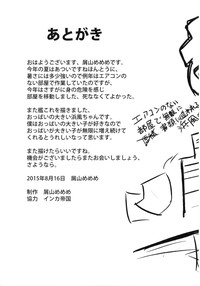 あとがき
おはようございます、屑山めめめです。
今年の夏はあついですねほんとうに。
暑さには多少強いので例年はエアコンの
ない部屋で作業していたのですが、
今年はさすがに身の危険を感じ
部屋を移動しました、死ななくてよかった。
また艦これを描きました。
おっぱいの大きい浜風ちゃんです。
僕はおっぱいの大きい子が好きなので
おっぱいが大きい子が無限に増え続けて
くれるとうれしいなって思います。
また描けたらいいですね。
機会がございましたらまたお会いしましょう、
さようなら。
2015年8月16日 屑山めめめ
制作 屑山めめめ
協力 インカ帝国
エアコンのない
部屋で